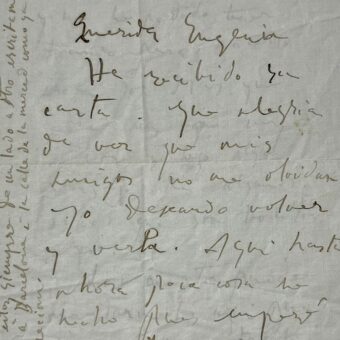 Querida Eugenia
He recibido su
carta. Que alegria
de ver que mis
amigos no me olvidan
yo deseando volver
y verla. Aqui hasta
ahora poca cosa he
hecho pues empecé
siempre de un lado a otro
a Barcelona á la calle de la merced como ya